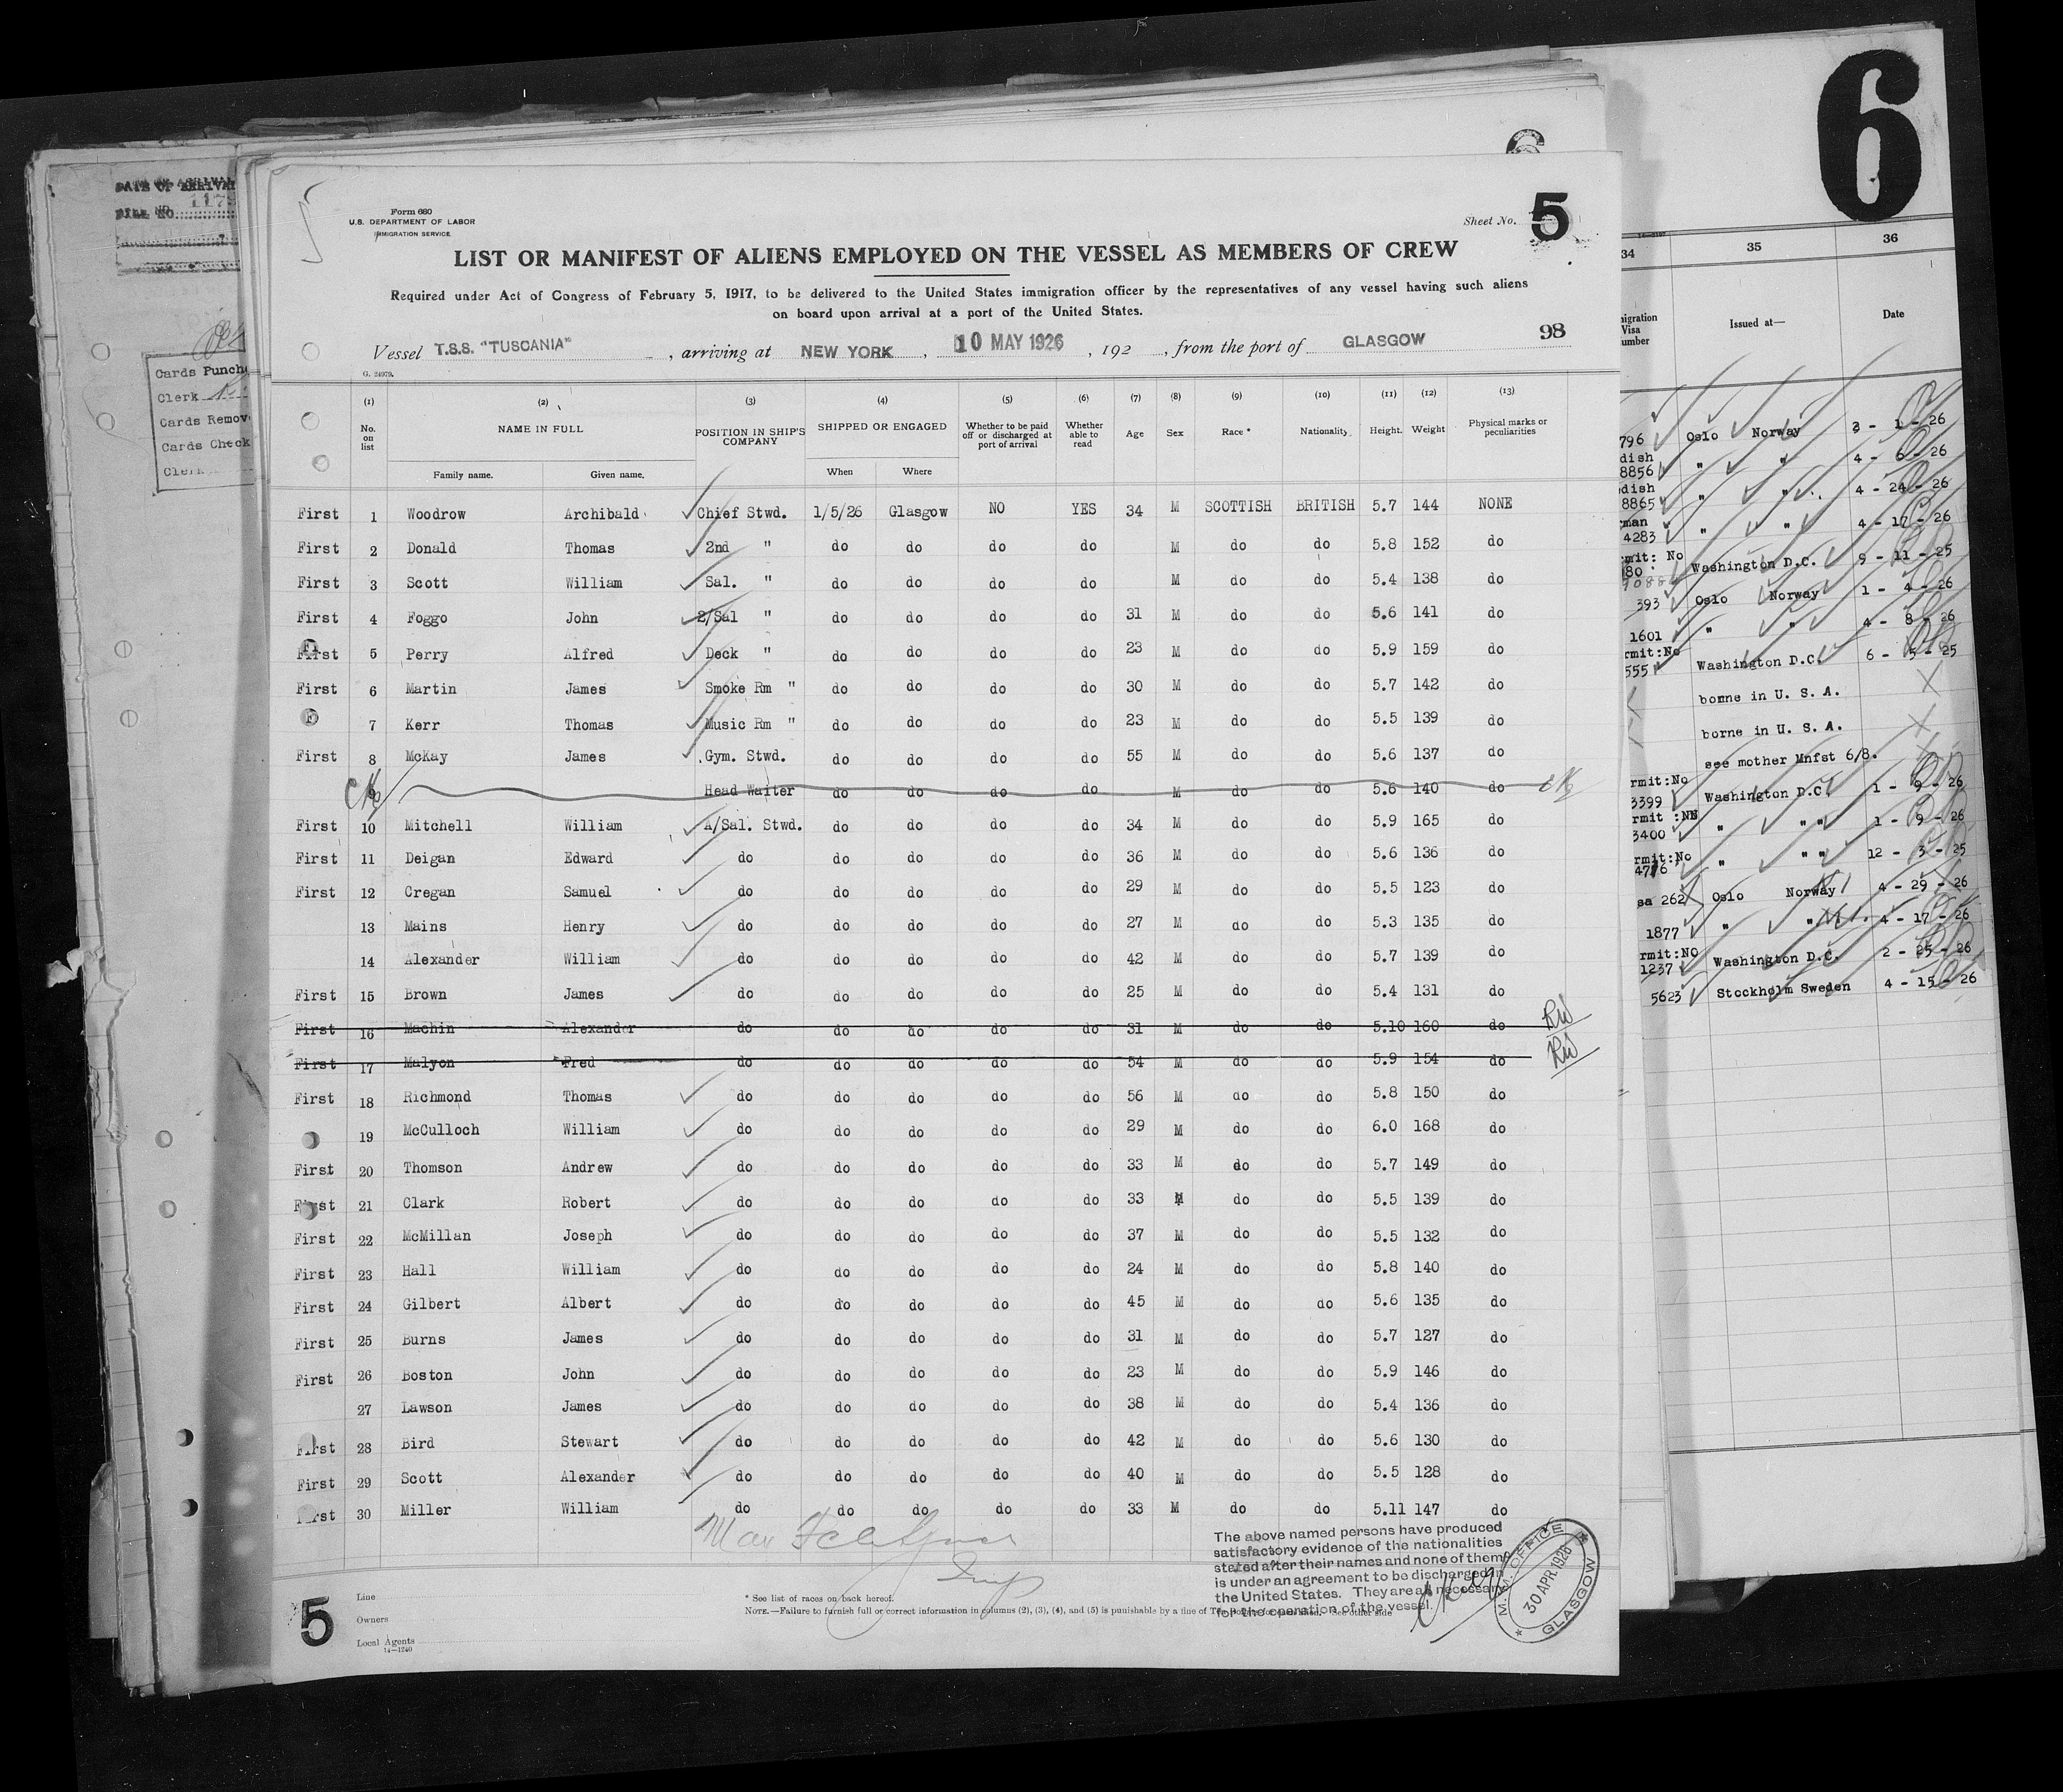 6
DATE OF ARRIVAL
FILE NO.
Cards Punch
Clerk
Cards Remov
Cards Check
Cler
Form 680
U.S. DEPARTMENT OF LABOR
IMMIGRATION SERVICE
Sheet No. 5
LIST OR MANIFEST OF ALIENS EMPLOYED ON THE VESSEL AS MEMBERS OF CREW
Required under Act of Congress of February 5, 1917, to be delivered to the United States immigration officer by the representatives of any vessel having such aliens
on board upon arrival at a port of the United States.
98
Vessel T.S.S. "TUSCANIA", arriving at NEW YORK, 10 MAY 1926, 192, from the port of GLASGOW
G. 24979.
(1) (2) (3) (4) (5) (6) (7) (8) (9) (10) (11) (12) (13)
No. on list NAME IN FULL POSITION IN SHIP'S COMPANY SHIPPED OR ENGAGED Whether to be paid off or discharged at port of arrival Whether able to read Age Sex Race * Nationality. Height. Weight Physical marks or peculiarities
Family name. Given name. When Where
First 1 Woodrow Archibald Chief Stwd. 1/5/26 Glasgow NO YES 34 M SCOTTISH BRITISH 5.7 144 NONE
First 2 Donald Thomas 2nd " do do do do M do do 5.8 152 do
First 3 Scott William Sal. " do do do do M do do 5.4 138 do
First 4 Foggo John 2/Sal " do do do do 31 M do do 5.6 141 do
First 5 Perry Alfred Deck " do do do do 23 M do do 5.9 159 do
First 6 Martin James Smoke Rm " do do do do 30 M do do 5.7 142 do
7 Kerr Thomas Music Rm " do do do do 23 M do do 5.5 139 do
First 8 McKay James Gym. Stwd. do do do do 55 M do do 5.6 137 do
9 Head Waiter do do do do M do do 5.6 140 do
First 10 Mitchell William A/Sal. Stwd. do do do do 34 M do do 5.9 165 do
First 11 Deigan Edward do do do do do 36 M do do 5.6 136 do
First 12 Cregan Samuel do do do do do 29 M do do 5.5 123 do
13 Mains Henry do do do do do 27 M do do 5.3 135 do
14 Alexander William do do do do do 42 M do do 5.7 139 do
First 15 Brown James do do do do do 25 M do do 5.4 131 do
First 16 Machin Alexander do do do do do 31 M do do 5.10 160 do
First 17 Malyon Fred do do do do do 54 M do do 5.9 154 do
First 18 Richmond Thomas do do do do do 56 M do do 5.8 150 do
19 McCulloch William do do do do do 29 M do do 6.0 168 do
First 20 Thomson Andrew do do do do do 33 M do do 5.7 149 do
First 21 Clark Robert do do do do do 33 M do do 5.5 139 do
First 22 McMillan Joseph do do do do do 37 M do do 5.5 132 do
First 23 Hall William do do do do do 24 M do do 5.8 140 do
First 24 Gilbert Albert do do do do do 45 M do do 5.6 135 do
First 25 Burns James do do do do do 31 M do do 5.7 127 do
First 26 Boston John do do do do do 23 M do do 5.9 146 do
27 Lawson James do do do do do 38 M do do 5.4 136 do
First 28 Bird Stewart do do do do do 42 M do do 5.6 130 do
First 29 Scott Alexander do do do do do 40 M do do 5.5 128 do
First 30 Miller William do do do do do 33 M do do 5.11 147 do
The above named persons have produced
satisfactory evidence of the nationalities
stated after their names and none of them
is under an agreement to be discharged in
the United States. They are all necessary
for the operation of the vessel.
M.M. OFFICE
30 APR 1926
GLASGOW
5
Line
Owners
Local Agents
14—1240
* See list of races on back hereof.
NOTE.—Failure to furnish full or correct information in columns (2), (3), (4), and (5) is punishable by a fine of
34 35 36
migration Visa umber Issued at— Date
796 Oslo Norway 3 - 1 - 26
dish 8856 " " 4 - 6 - 26
dish 8865 " " 4 - 24 - 26
man 4283 " " 4 - 17 - 26
rmit: No Washington D.C. 9 - 11 - 25
393 Oslo Norway 1 - 4 - 26
1601 " " 4 - 8 - 26
rmit:No 555 Washington D.C. 6 - 15 - 25
borne in U. S. A.
borne in U. S. A.
see mother Mnfst 6/8.
rmit:No 3399 Washington D.C. 1 - 9 - 26
rmit :NN 3400 " " " 1 - 9 - 26
rmit:No " " " 12 - 3 - 25
sa 262 Oslo Norway 4 - 29 - 26
1877 " " 4 - 17 - 26
rmit:NO 1237 Washington D.C. 2 - 25 - 26
5623 Stockholm Sweden 4 - 15 - 26